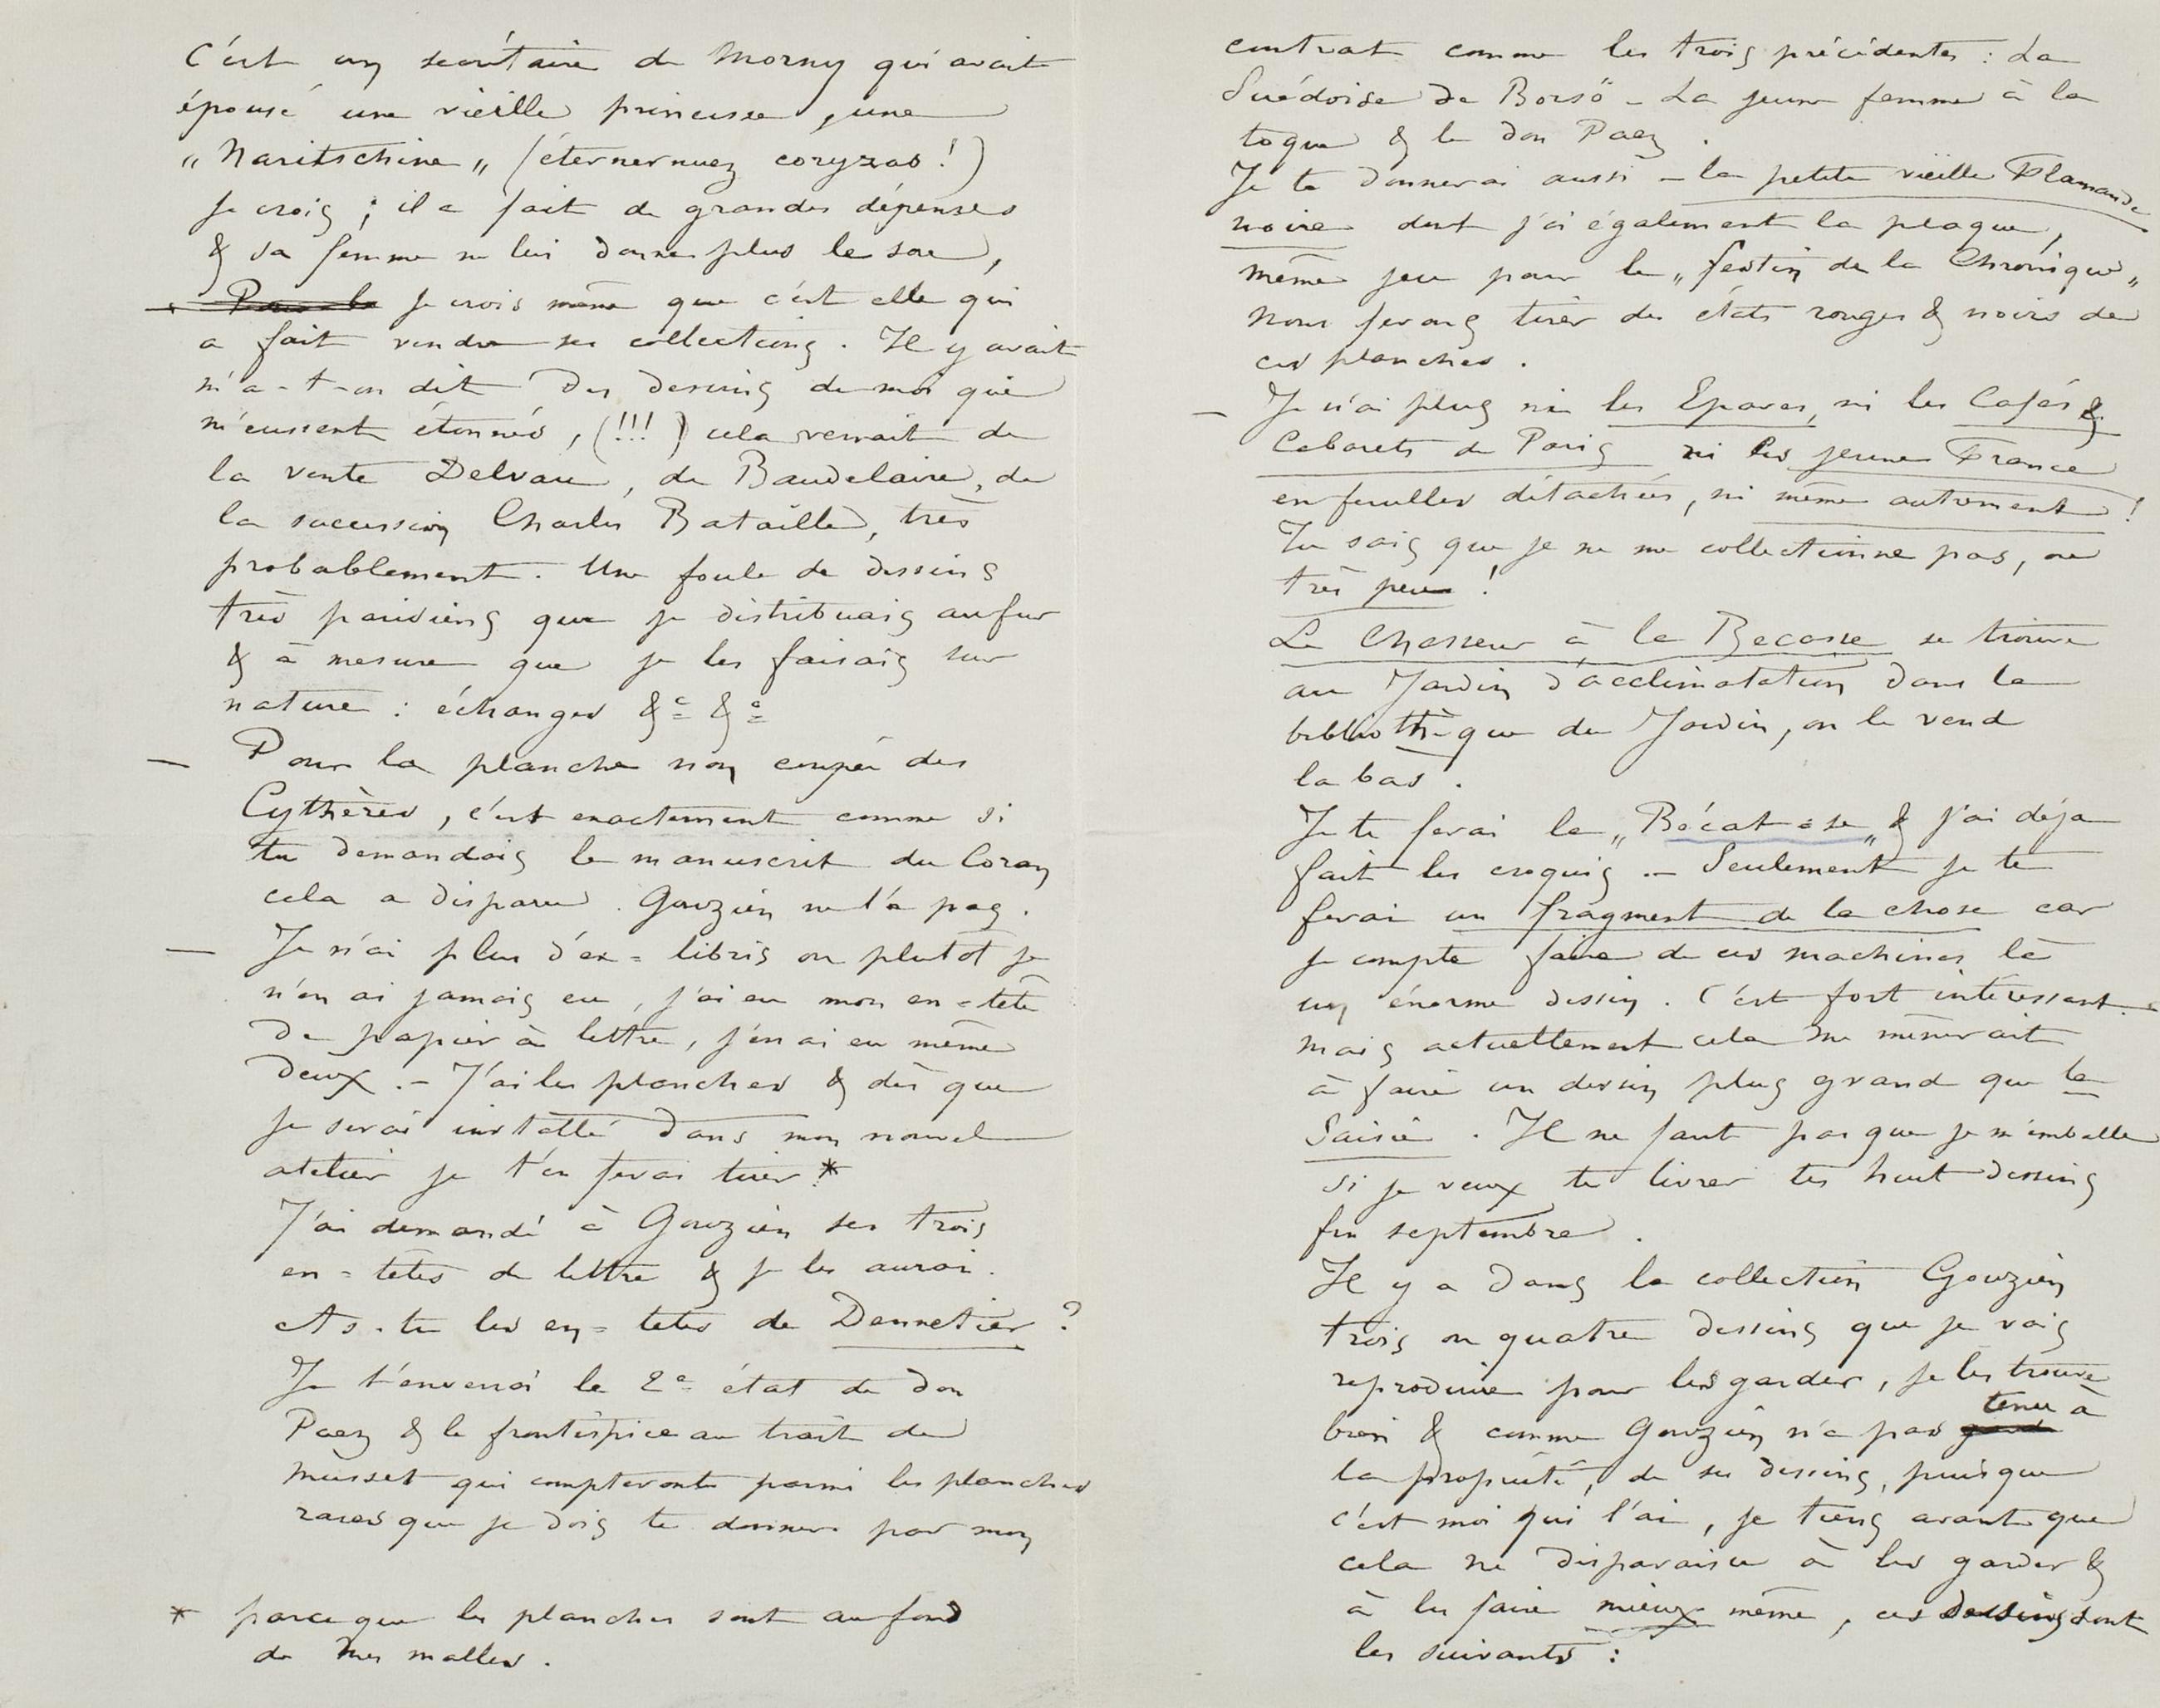 C'est un secrétaire de Morny qui avait
épousé une vieille princesse, une
„ Naritschine „ (éternernuez coryzas !)
je crois ; il a fait de grandes dépenses
& sa femme ne lui donne plus le sou,
je crois même que c'est elle qui
a fait vendre ses collections. Il y avait
m'a-t-on dit des dessins de moi qui
m'eussent étonnés, (!!!) cela venait de
la vente Delvau, de Baudelaire, de
la succession Charles Bataille, très
probablement. Une foule de dessins
très parisiens que je distribuais au fur
& à mesure que je les faisais sur
nature : échanges &c &c
— Pour la planche non coupée des
Cythères, c'est exactement comme si
tu demandais le manuscrit du Coran
cela a disparu. Gouzien ne l'a pas.
— Je n'ai plus d'ex=libris ou plutot je
n'en ai jamais eu, j'ai eu mon en=tête
de papier à lettre, j'en ai eu même
deux .— J'ai les planches & dès que
je serai installé dans mon nouvel
atelier je t'en ferai tirer.*
J'ai demandé à Gouzien ses trois
en=têtes de lettre & je les aurai.
As-tu les en=têtes de Dennetier ?
Je t'enverrai le 2e état de don
Paez & le frontispice au trait de
Musset qui compteront parmi les planches
rares que je dois te donner par mon
* parce que les planches sont au fond
de mes malles.
contrat comme les trois précédentes : La
Suédoise de Borsö – La jeune femme à la
toque & le don Paez.
Je te donnerai aussi – la petite vieille Flamande
noire dont j'ai également la plaque,
même jeu pour le „ festin de la Chronique „
nous ferons tirer des états rouges & noirs de
ces planches.
— Je n'ai plus ni les Epaves, ni les Cafés &
Cabarets de Paris ni les jeune France
en feuilles détachées, ni même autrement !
Tu sais que je ne me collectionne pas, ou
très peu !
Le Chasseur à la Becasse se trouve
au Jardin d'acclimatation dans la
bibliothèque du Jardin, on le vend
la bas.
Je te ferai le „ Bécat=se „ & j'ai déja
fait les croquis .– Seulement je te
ferai un fragment de la chose car
je compte faire de ces machines là
un énorme dessin. C'est fort intéressant.
mais actuellement cela me mènerait
à faire un dessin plus grand que la
Saisie. Il ne faut pas que je m'emballe
si je veux te livrer tes huit dessins
fin septembre.
Il y a dans la collection Gouzien
trois ou quatre dessins que je vais
reproduire pour les garder, je les trouve
bien & comme Gouzien n'a pas tenu à
la propriété, de ses dessins, puisque
c'est moi qui l'ai, je tiens avant que
cela ne disparaisse à les garder &
à les faire mieux même, ces dessins sont
les suivants :